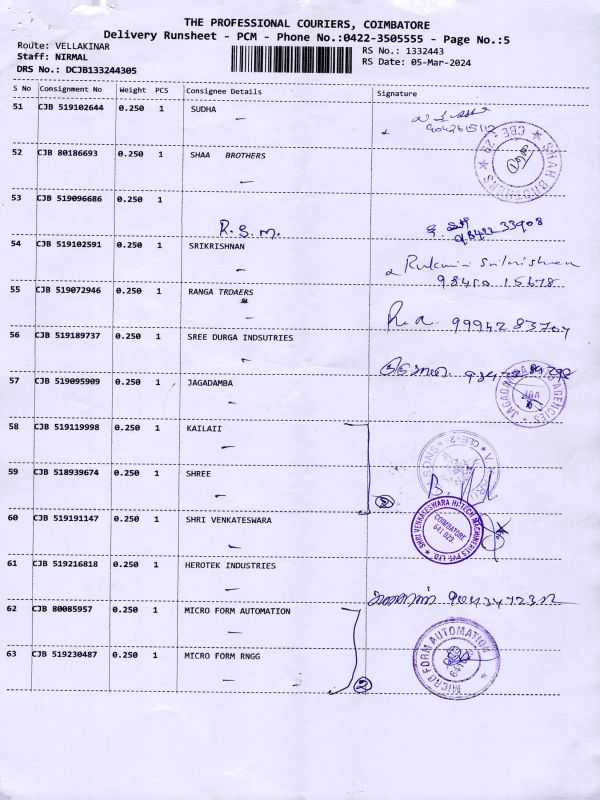 THE PROFESSIONAL COURIERS, COIMBATORE
Delivery Runsheet - PCM - Phone No.:0422-3505555 - Page No.:5
Route: VELLAKINAR
RS No.: 1332443
Staff: NIRMAL
RS Date: 05-Mar-2024
DRS No.: DCJB133244305
S No Consignment No Weight PCS Consignee Details Signature
51 CJB 519102644 0.250 1 SUDHA
9042615112
52 CJB 80186693 0.250 1 SHAA BROTHERS
SHAH BROTHERS CBE - 29
53 CJB 519096686 0.250 1
R.S.M. 98422 33908
54 CJB 519102591 0.250 1 SRIKRISHNAN
98450 15678
55 CJB 519072946 0.250 1 RANGA TRDAERS
R.a. 99942 83704
56 CJB 519189737 0.250 1 SREE DURGA INDSUTRIES
57 CJB 519095909 0.250 1 JAGADAMBA
JAGADAMBA AGENCIES
58 CJB 519119998 0.250 1 KAILAII
59 CJB 518939674 0.250 1 SHREE
2
60 CJB 519191147 0.250 1 SHRI VENKATESWARA
SHRI VENKATESWARA HI-TECH MACHINERIES PVT. LTD
COIMBATORE
641 029.
61 CJB 519216818 0.250 1 HEROTEK INDUSTRIES
62 CJB 80085957 0.250 1 MICRO FORM AUTOMATION
MICRO FORM AUTOMATION
63 CJB 519230487 0.250 1 MICRO FORM RNGG
2